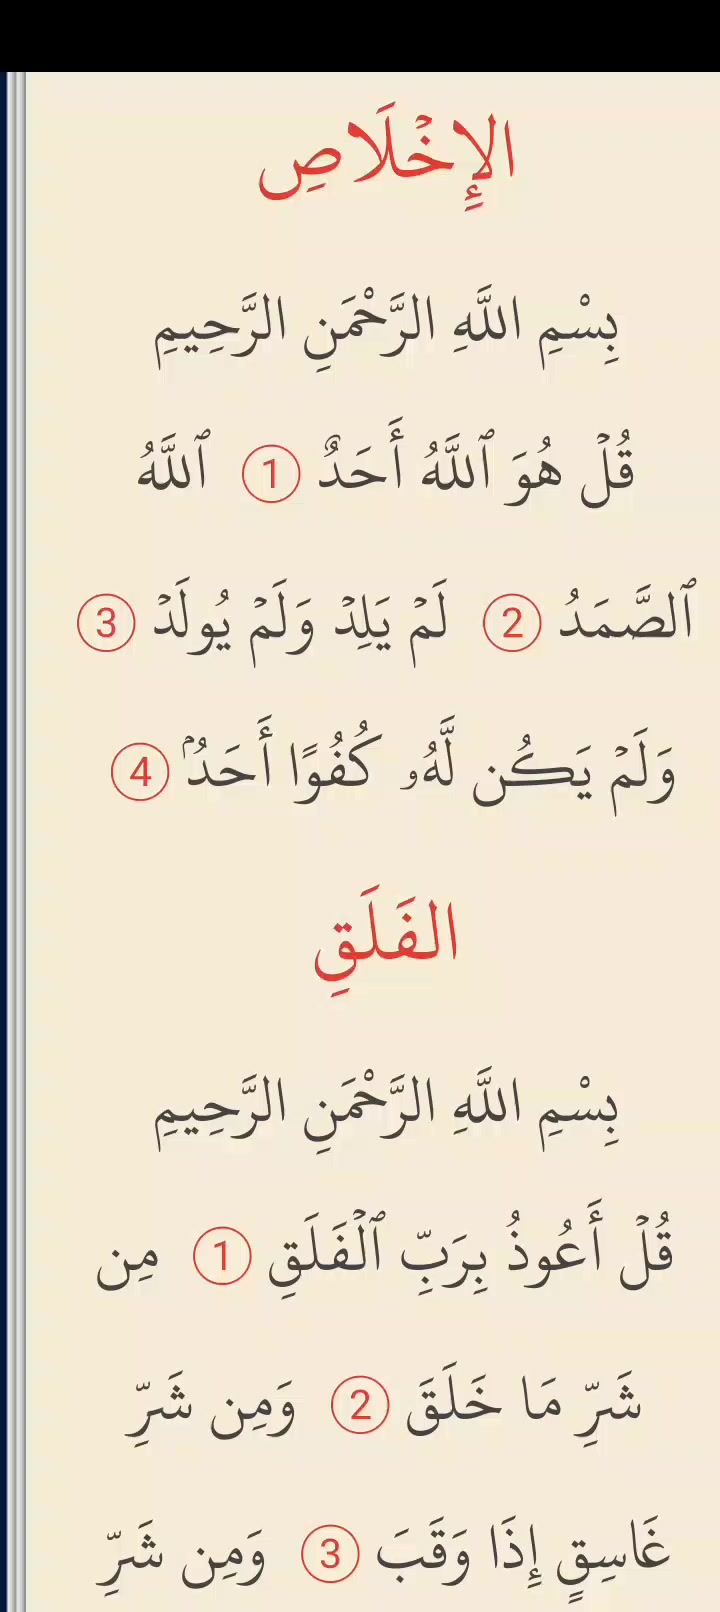 الإِخْلَاصِ
بِسْمِ اللَّهِ الرَّحْمَنِ الرَّحِيمِ
قُلۡ هُوَ ٱللَّهُ أَحَدٌ 1 ٱللَّهُ
ٱلصَّمَدُ 2 لَمۡ يَلِدۡ وَلَمۡ يُولَدۡ 3
وَلَمۡ يَكُن لَّهُۥ كُفُوًا أَحَدُۢ 4
الفَلَقِ
بِسْمِ اللَّهِ الرَّحْمَنِ الرَّحِيمِ
قُلۡ أَعُوذُ بِرَبِّ ٱلۡفَلَقِ 1 مِن
شَرِّ مَا خَلَقَ 2 وَمِن شَرِّ
غَاسِقٍ إِذَا وَقَبَ 3 وَمِن شَرِّ